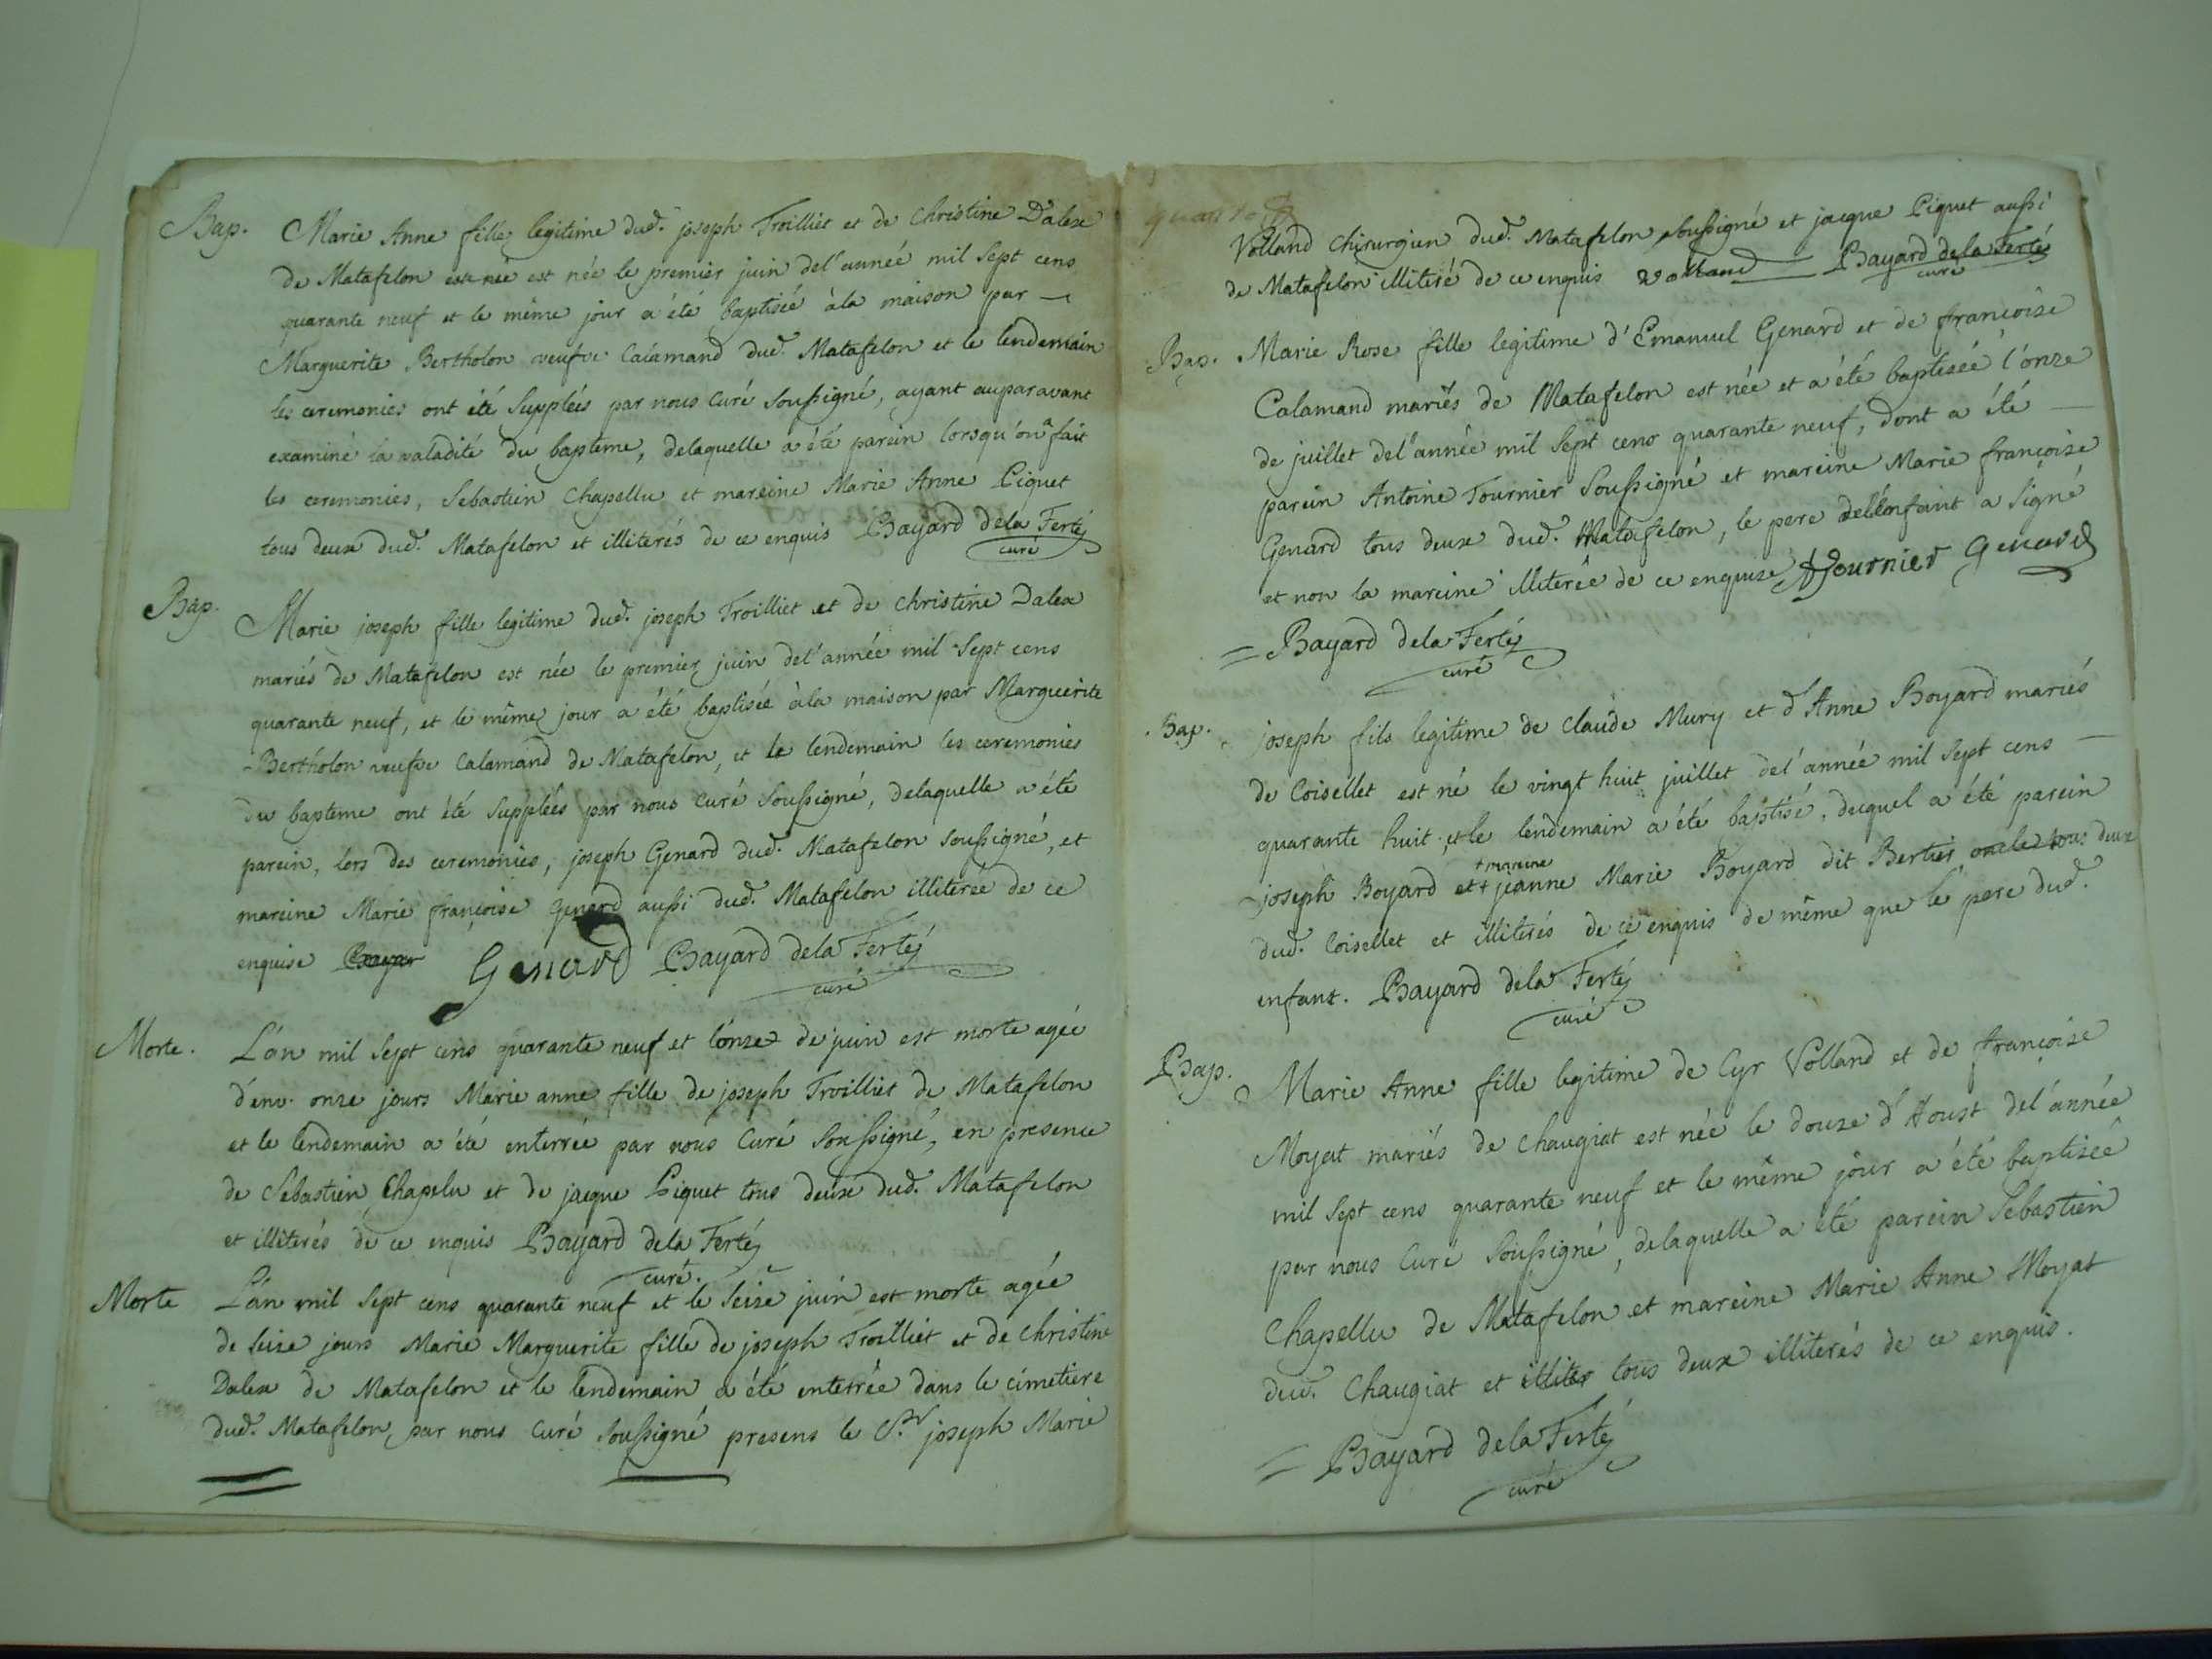 Bap. Marie Anne fille legitime dud. joseph Troilliet et de Christine Dalex
de Matafelon est née est née le premier juin del'année mil sept cens
quarante neuf et le même jour a été baptisée àla maison par
Marguerite Bertholon veufve Calamand dud. Matafelon et le lendemain
les ceremonies ont été supplées par nous Curé soussigné, ayant auparavant
examiné la validité du baptême, delaquelle a été parein lorsqu'on a fait
les ceremonies, Sebastien Chapellu et mareine Marie Anne Piquet
tous deux dud. Matafelon et illiterés de ce enquis Bayard dela Ferté
curé
Bap. Marie joseph fille legitime dud. joseph Troilliet et de christine Dalex
mariés de Matafelon est née le premier juin del'année mil sept cens
quarante neuf, et le même jour a été baptisée àla maison par Marguerite
Bertholon veufve Calamand de Matafelon, et le lendemain les ceremonies
du bapteme ont été supplées par nous curé soussigné, delaquelle a été
parein, lors des ceremonies, joseph Genard dud. Matafelon soussigné, et
mareine Marie françoise Genard aussi dud. Matafelon illiterée de ce
enquise Bayar Genard Bayard dela Ferté
curé
Morte. L'an mil sept cens quarante neuf et l'onze de juin est morte agée
d'env. onze jours Marie anne fille de joseph Troilliet de Matafelon
et le lendemain a été enterrée par nous Curé soussigné, en presence
de Sebastien Chapelu et de jacque Piquet tous deux dud. Matafelon
et illiterés de ce enquis Bayard dela Ferté
curé.
Morte L'an mil sept cens quarante neuf et le seize juin est morte agée
de seize jours Marie Marguerite fille de joseph Troilliet et de Christine
Dalex de Matafelon et le lendemain a été enterrée dans le cimetiere
dud. Matafelon, par nous curé soussigné presens le Sr. joseph Marie
Volland chirurgien dud. Matafelon soussigné et jacque Piquet aussi
de Matafelon illiteré de ce enquis Volland Bayard dela Ferté
curé
Bap. Marie Rose fille legitime d'Emanuel Genard et de françoise
Calamand mariés de Matafelon est née et a été baptisée l'onze
de juillet del'année mil sept cens quarante neuf, dont a été
parein Antoine Tournier soussigné et mareine Marie françoise
Genard tous deux dud. Matafelon, le pere del'enfant a signé
et non la mareine illiterée de ce enquise ATournier Genard
Bayard dela Ferté
curé
Bap. joseph fils legitime de claude Mury et d'Anne Boyard mariés
de Coisellet est né le vingt huit juillet del'année mil sept cens
quarante huit et le lendemain a été baptisé, duquel a été parein
+ mareine
joseph Boyard et + jeanne Marie Boyard dit Bertier oncle tous deux
dud. Coisellet et illiterés de ce enquis de même que le pere dud.
enfant. Bayard dela Ferté
curé
Bap. Marie Anne fille legitime de Cyr Volland et de françoise
Moyat mariés de Chaugiat est née le douze d'Aoust del'année
mil sept cens quarante neuf et le même jour a été baptisée
par nous Curé soussigné, delaquelle a été parein Sebastien
Chapellu de Matafelon et mareine Marie Anne Moyat
dud. Chaugiat et illiter tous deux illiterés de ce enquis.
Bayard dela Ferté
curé